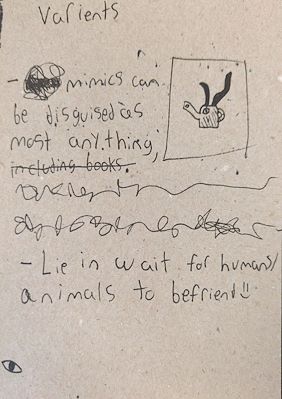 Varients
- mimics can
be disguised as
most anything,
including books.
- Lie in wait for humans/
animals to befriend!!